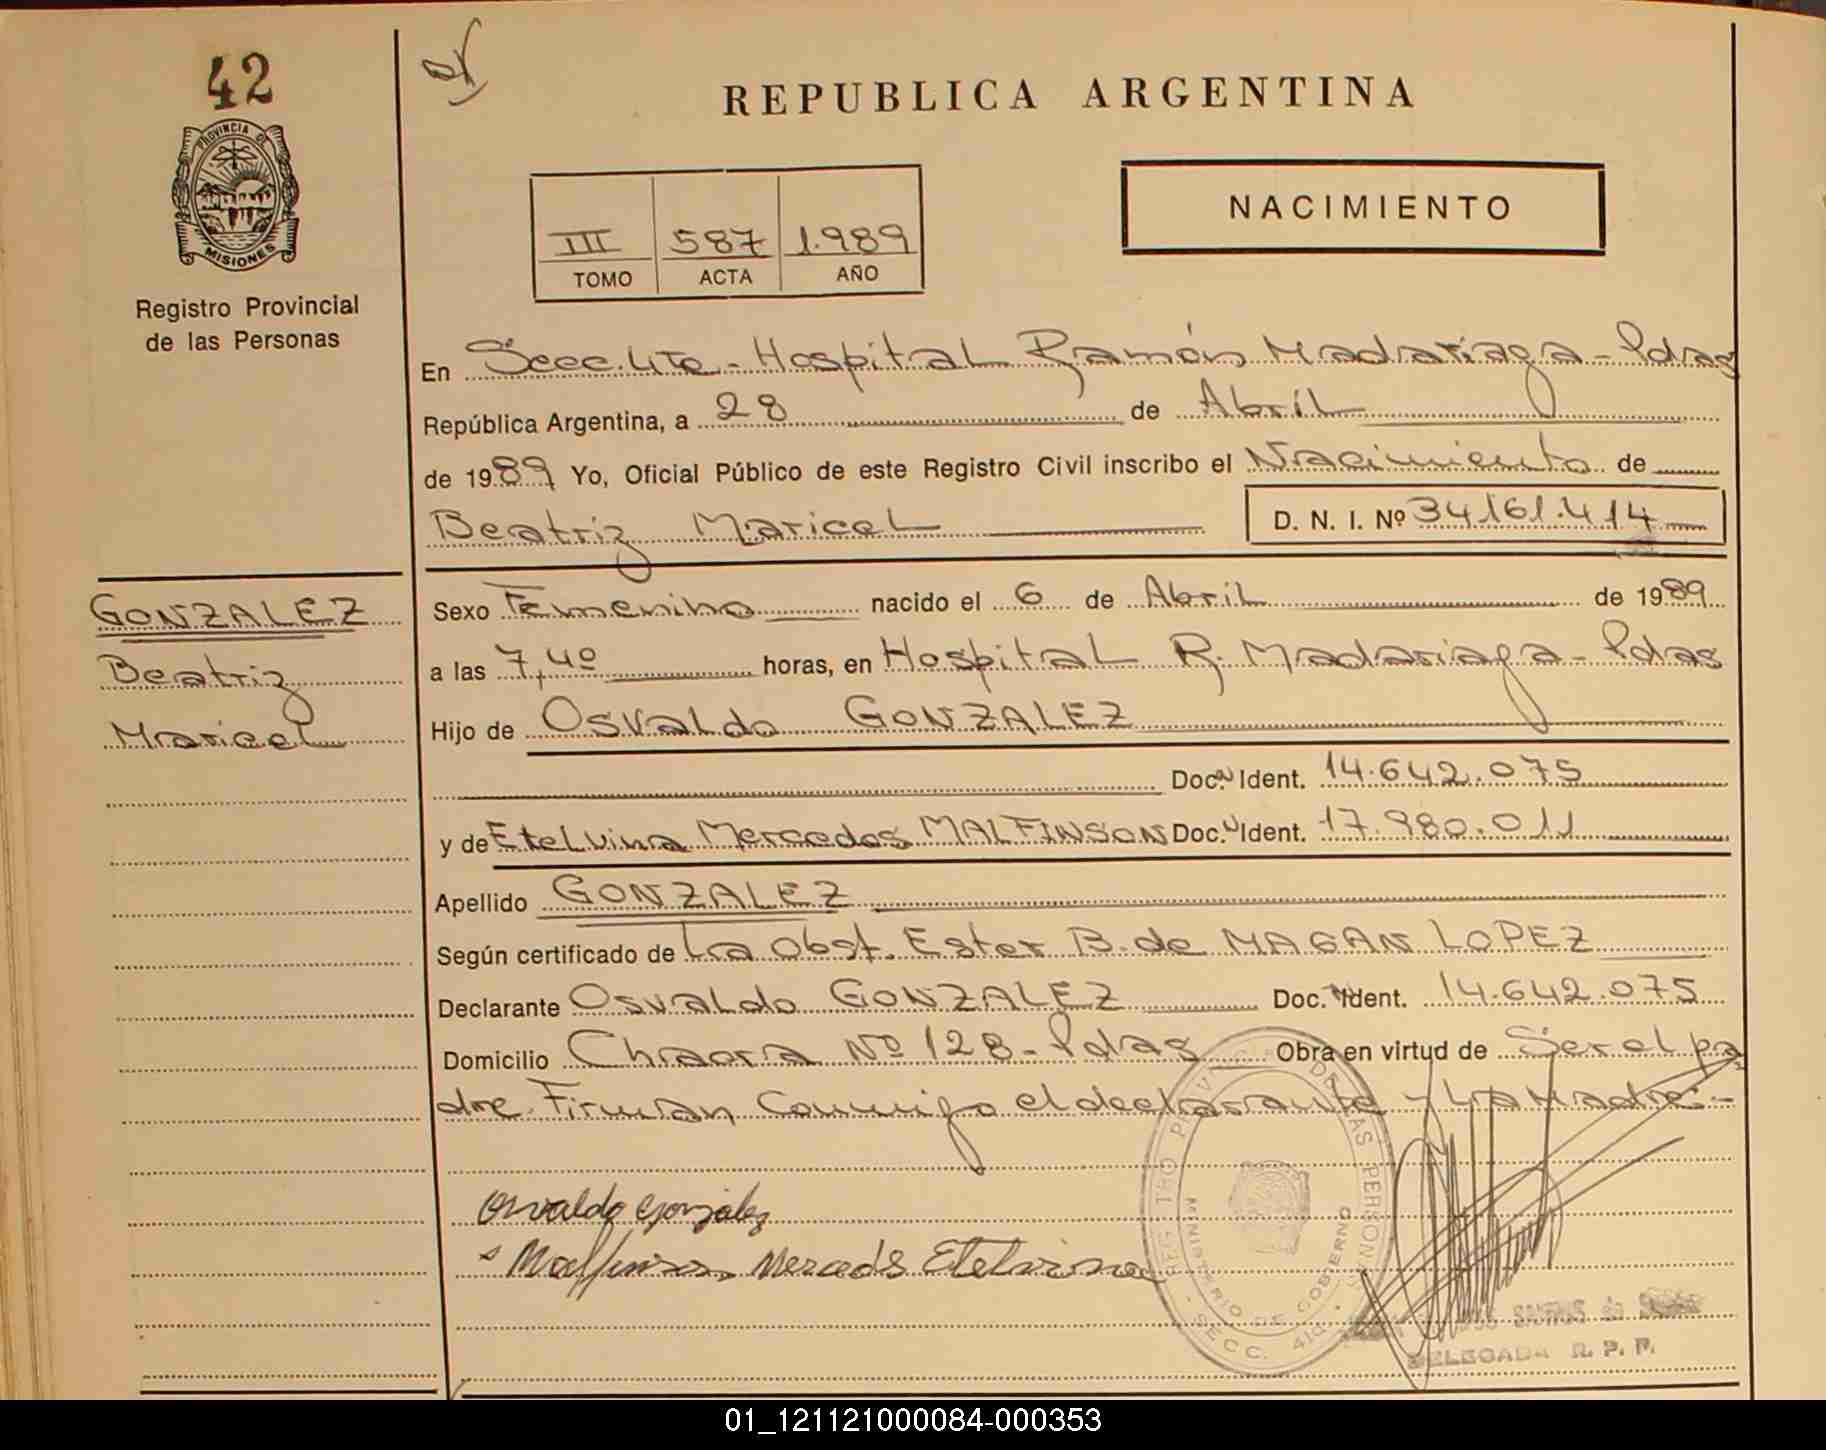 42
PROVINCIA DE
MISIONES
Registro Provincial
de las Personas
GONZALEZ
Beatriz
Maricel
REPUBLICA ARGENTINA
III 587 1.989
TOMO ACTA AÑO
NACIMIENTO
En Secc. 4ta - Hospital Ramón Madariaga - Pdas
República Argentina, a 28 de Abril
de 1989 Yo, Oficial Público de este Registro Civil inscribo el Nacimiento de
Beatriz Maricel D. N. I. Nº 34.161.414
Sexo Femenino nacido el 6 de Abril de 1989
a las 7,40 horas, en Hospital R. Madariaga - Pdas
Hijo de Osvaldo GONZALEZ
Doc. Ident. 14.642.075
y de Etelvina Mercedes MALFINSON Doc. Ident. 17.980.011
Apellido GONZALEZ
Según certificado de La Obst. Ester B. de MAGAN LOPEZ
Declarante Osvaldo GONZALEZ Doc. Ident. 14.642.075
Domicilio Chacra Nº 128 - Pdas Obra en virtud de Ser el pa
dre. Firman Conmigo el declarante y La Madre.-
Osvaldo González
Malfinson Mercedes Etelvina
REGISTRO PROVINCIAL DE LAS PERSONAS
MINISTERIO DE GOBIERNO
SECC. 4ta
DELEGADA R. P. P.
01_121121000084-000353